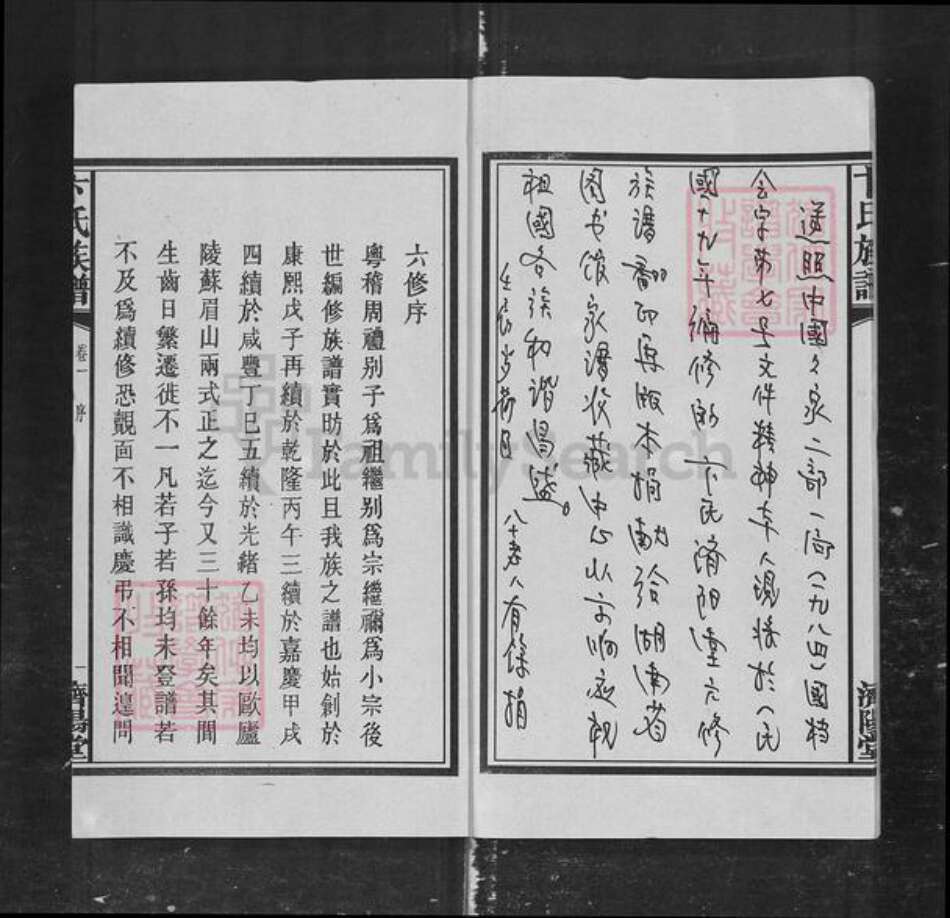 卞氏族譜
濟陽堂
遵照中國之家二部一局(一九八四)國档
会字第七号文件精神本人現将於(民
國十九年編修的卞氏濟陽堂六修
族譜
再版本捐献给湖南省
图书馆家谱收藏中心以示响应祝
祖國各族和谐昌盛。
八十老人有餘捐
六修序
粵稽周禮別子爲祖繼别爲宗繼禰爲小宗後
世編修族譜實昉於此且我族之譜也始創於
康熙戊子再續於乾隆丙午三續於嘉慶甲戌
四續於咸豐丁巳五續於光緒乙未均以歐廬
陵蘇眉山兩式正之迄今又三十餘年矣其間
生齒日繁遷徙不一凡若子若孫均未登譜若
不及爲續修恐覿面不相識慶弔不相聞遑問
卞氏族譜
卷一
序
一
濟陽堂
FamilySearch